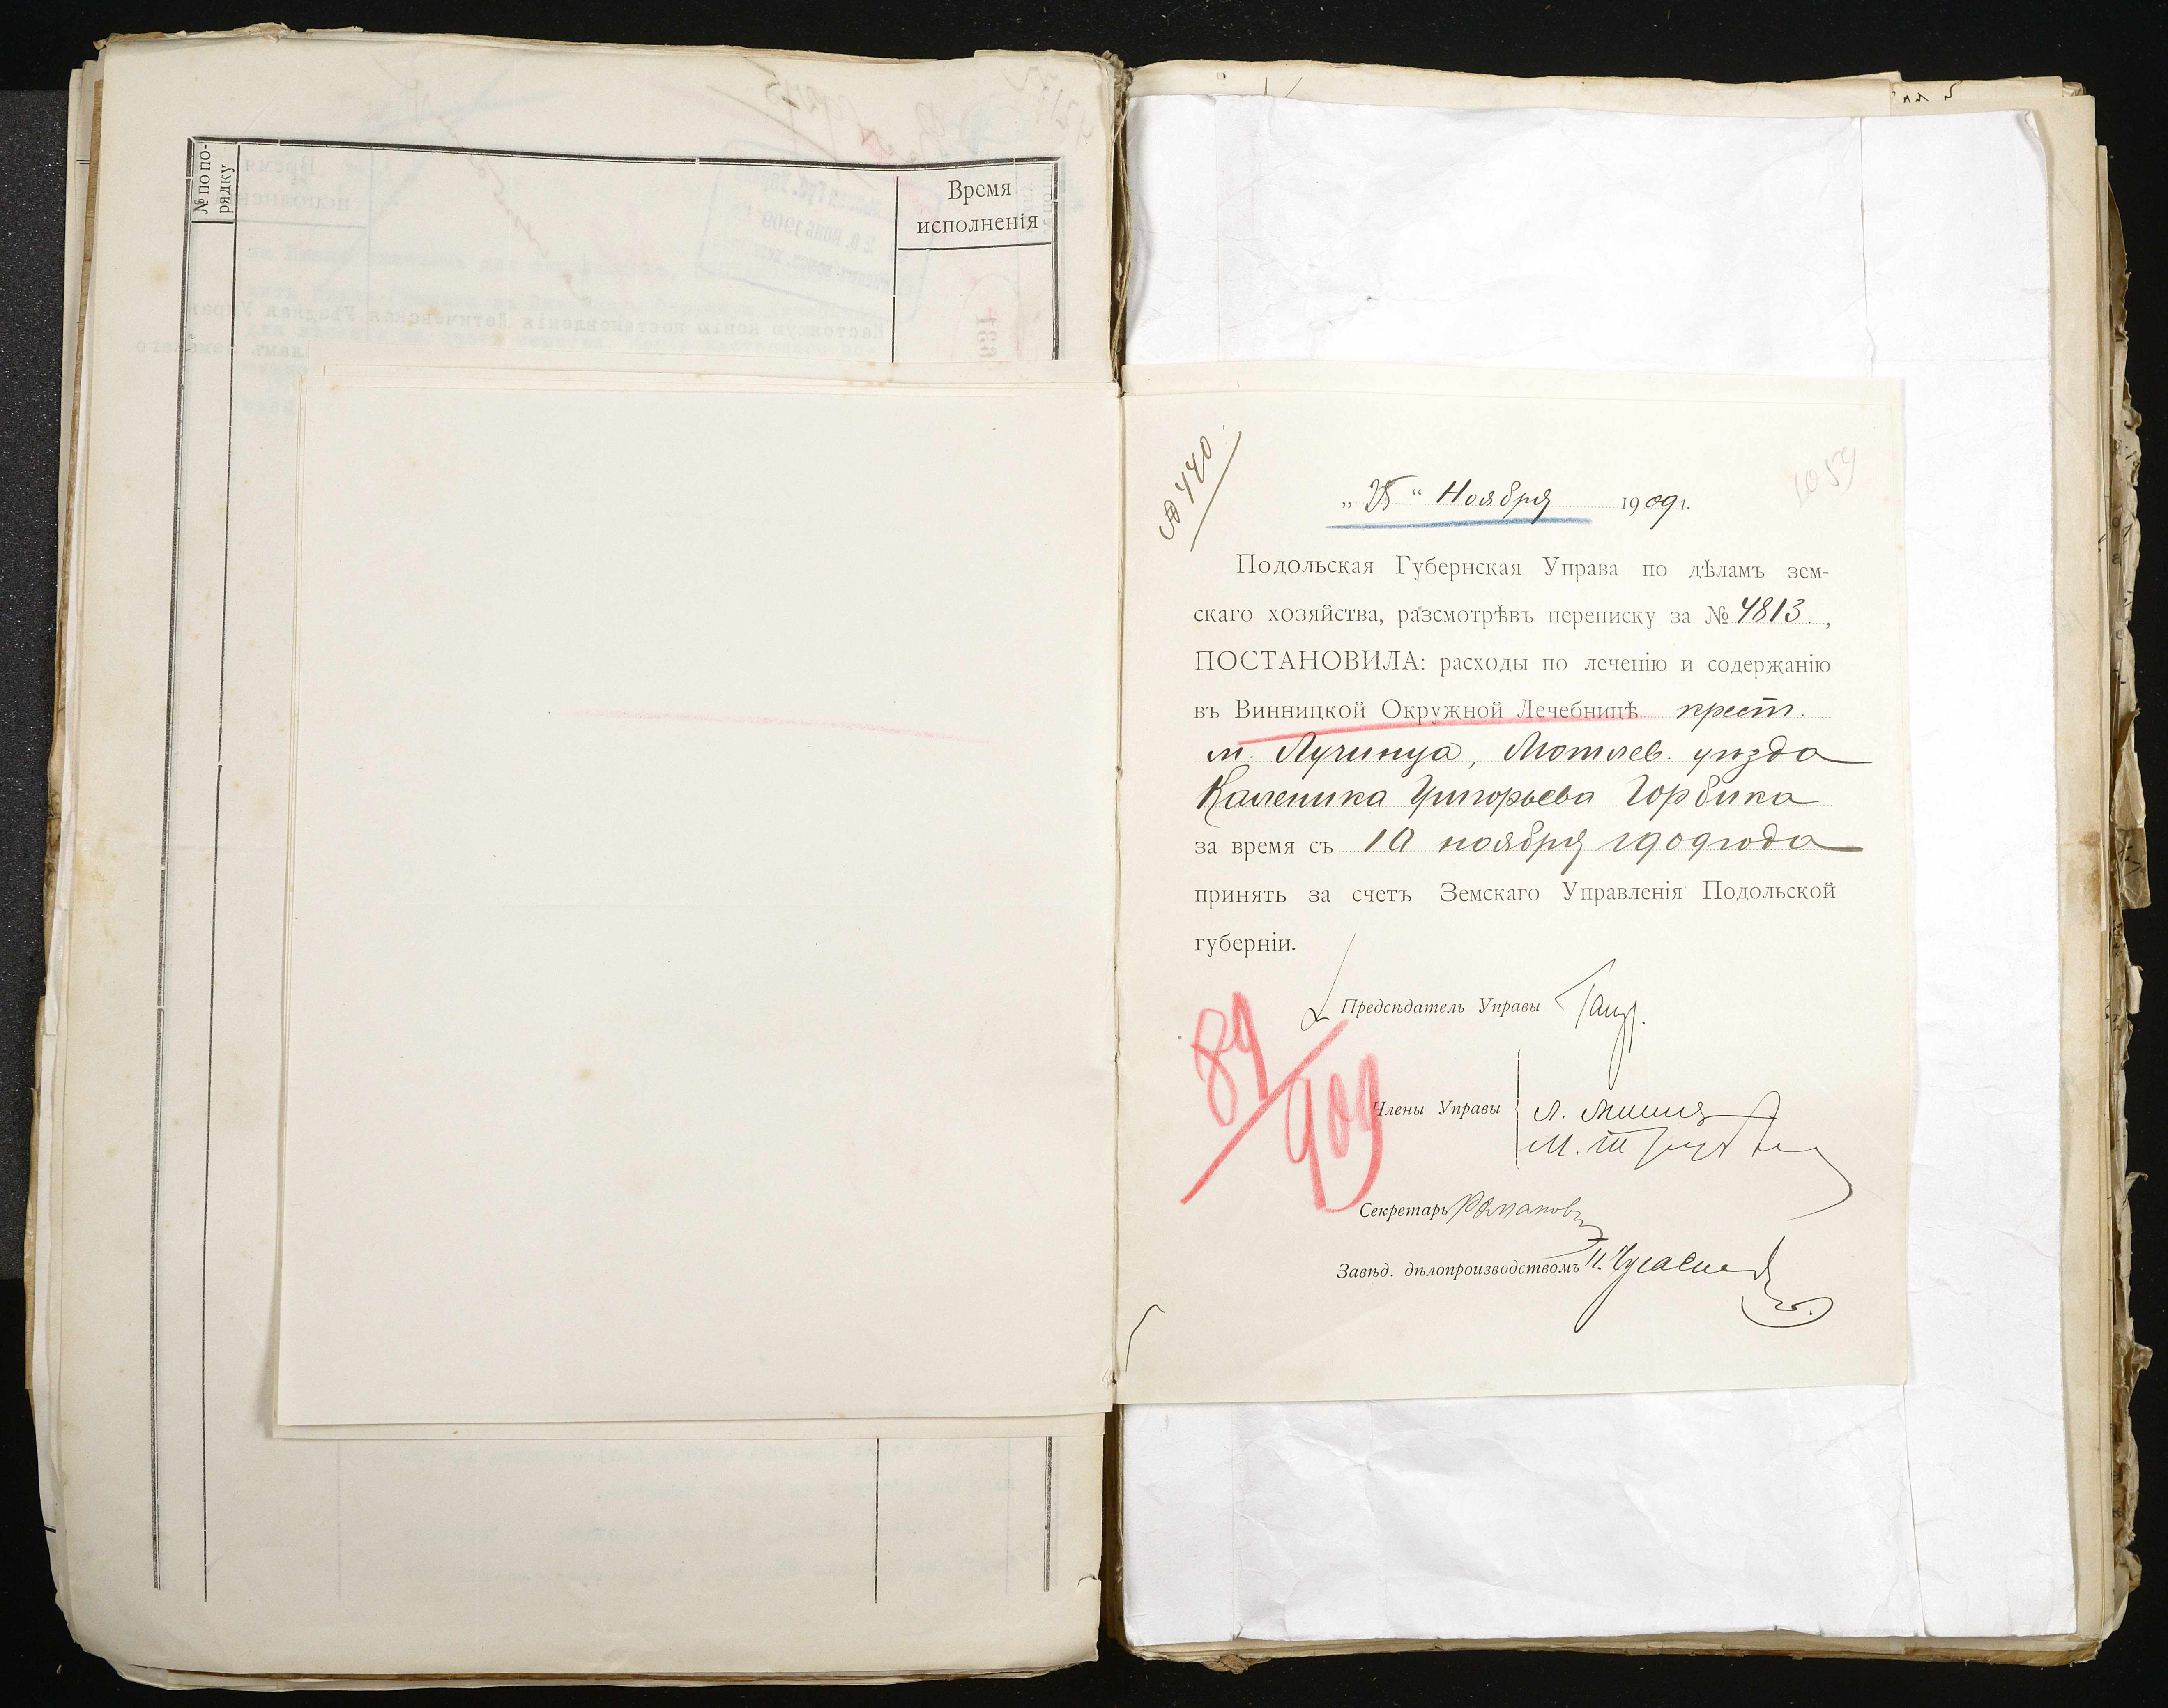 № по по-
рядку
Время
исполненія
№ 440
1059
„25“ Ноября 1909 г.
Подольская Губернская Управа по дѣламъ зем-
скаго хозяйства, разсмотрѣвъ переписку за № 4813.,
ПОСТАНОВИЛА: расходы по леченію и содержанію
въ Винницкой Окружной Лечебницѣ крест.
м. Лучинца, Могилев. уѣзда
Каленика Григорьева Горбика
за время съ 10 ноября 1909 года
принять за счетъ Земскаго Управленія Подольской
губерніи.
Предсѣдатель Управы
89/909
Члены Управы
Секретарь Романовъ
Завѣд. дѣлопроизводствомъ